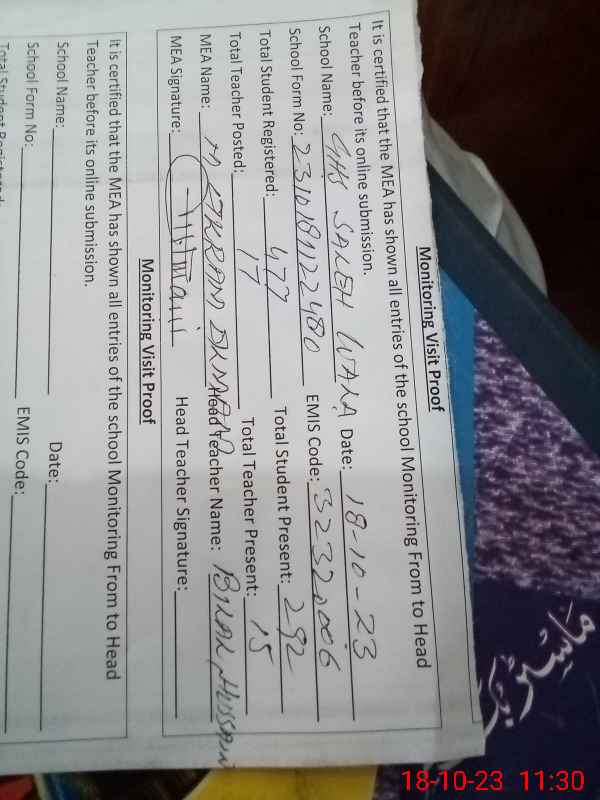 Monitoring Visit Proof
It is certified that the MEA has shown all entries of the school Monitoring From to Head
Teacher before its online submission.
School Name: GHS SALEH WALA Date: 18-10-23
School Form No: 2310181122480 EMIS Code: 32320006
Total Student Registered: 477 Total Student Present: 292
Total Teacher Posted: 17 Total Teacher Present: 15
MEA Name: M IKRAM Head Teacher Name: BILAL HUSSAIN
MEA Signature: Head Teacher Signature:
Monitoring Visit Proof
It is certified that the MEA has shown all entries of the school Monitoring From to Head
Teacher before its online submission.
School Name: Date:
School Form No: EMIS Code:
Total Student Registered:
18-10-23 11:30